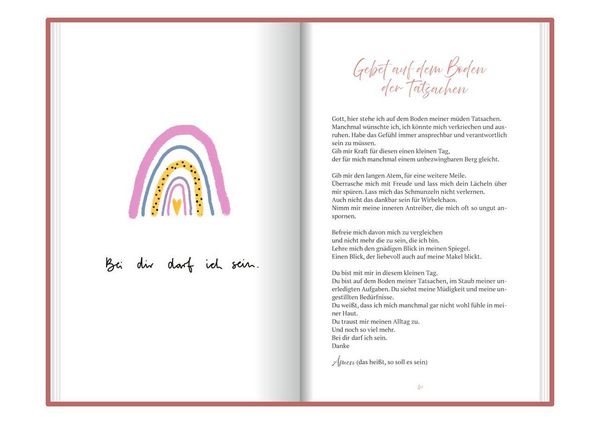 Bei dir darf ich sein.
Gebet auf dem Boden
der Tatsachen
Gott, hier stehe ich auf dem Boden meiner müden Tatsachen.
Manchmal wünschte ich, ich könnte mich verkriechen und aus-
ruhen. Habe das Gefühl immer ansprechbar und verantwortlich
sein zu müssen.
Gib mir Kraft für diesen einen kleinen Tag,
der für mich manchmal einem unbezwingbaren Berg gleicht.
Gib mir den langen Atem, für eine weitere Meile.
Überrasche mich mit Freude und lass mich dein Lächeln über
mir spüren. Lass mich das Schmunzeln nicht verlernen.
Auch nicht das dankbar sein für Wirbelchaos.
Nimm mir meine inneren Antreiber, die mich oft so ungut an-
spornen.
Befreie mich davon mich zu vergleichen
und nicht mehr die zu sein, die ich bin.
Lehre mich den gnädigen Blick in meinen Spiegel.
Einen Blick, der liebevoll auch auf meine Makel blickt.
Du bist mit mir in diesem kleinen Tag.
Du bist auf dem Boden meiner Tatsachen, im Staub meiner un-
erledigten Aufgaben. Du siehst meine Müdigkeit und meine un-
gestillten Bedürfnisse.
Du weißt, dass ich mich manchmal gar nicht wohl fühle in mei-
ner Haut.
Du traust mir meinen Alltag zu.
Und noch so viel mehr.
Bei dir darf ich sein.
Danke
Amen (das heißt, so soll es sein)